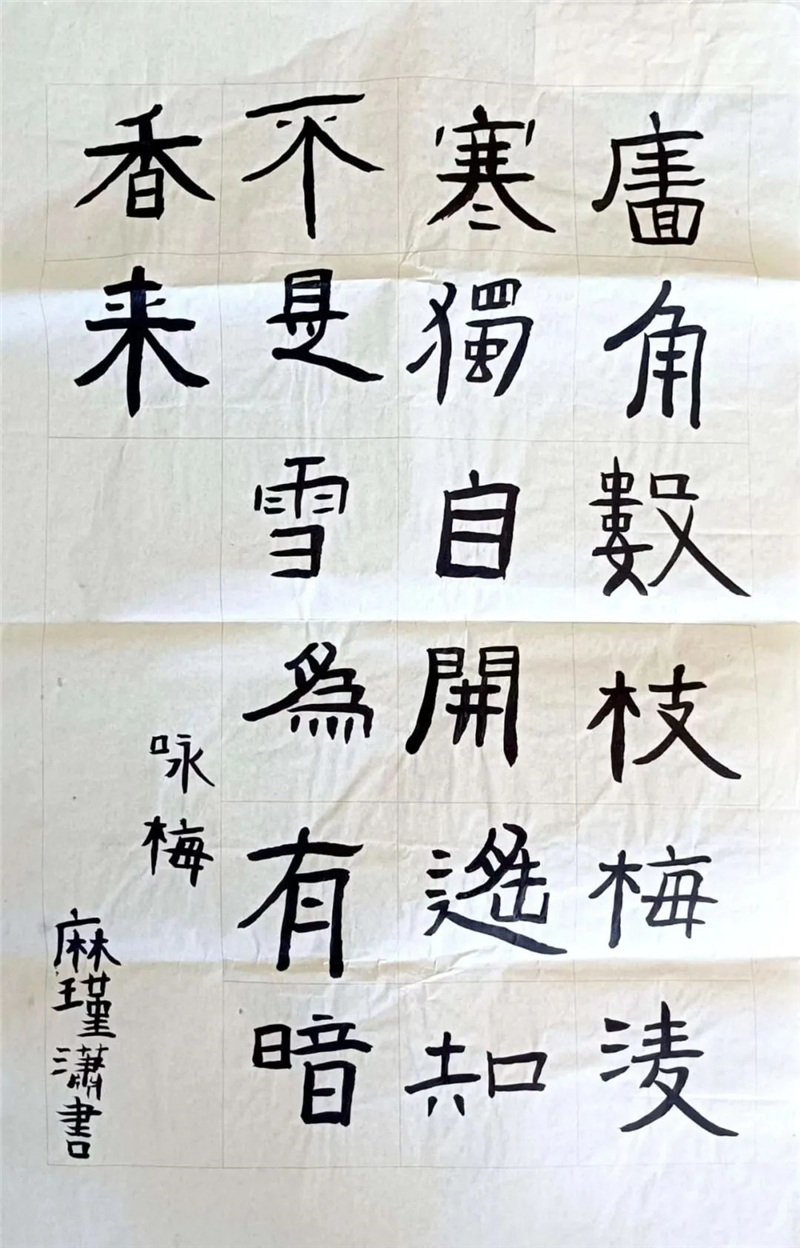 廧角數枝梅淩
寒獨自開遙知
不是雪爲有暗
香来
咏梅
麻瑾瀟書